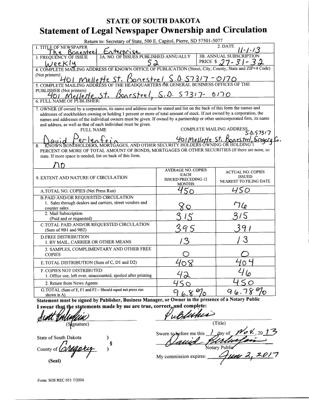 STATE OF SOUTH DAKOTA
Statement of Legal Newspaper Ownership and Circulation
Return to: Secretary of State, 500 E. Capitol, Pierre, SD 57501-5077
1. TITLE OF NEWSPAPER
The Bonesteel Enterprise
2. DATE
11-1-13
3. FREQUENCY OF ISSUE
Weekly
3A. NO. OF ISSUES PUBLISHED ANNUALLY
52
3B. ANNUAL SUBSCRIPTION
PRICE $ 27-31-32
4. COMPLETE MAILING ADDRESS OF KNOWN OFFICE OF PUBLICATION (Street, City, County, State and ZIP+4 Code)
(Not printers)
401 Mellette St. Bonesteel S.D. 57317-0170
5. COMPLETE MAILING ADDRESS OF THE HEADQUARTERS OR GENERAL BUSINESS OFFICES OF THE
PUBLISHER (Not printer)
401 Mellette St. Bonesteel, S.D. 57317-0170
6. FULL NAME OF PUBLISHER:
7. OWNER (If owned by a corporation, its name and address must be stated and list on the back of this form the names and
addresses of stockholders owning or holding 1 percent or more of total amount of stock. If not owned by a corporation, the
names and addresses of the individual owners must be given. If owned by a partnership or other unincorporated firm, its name
and address, as well as that of each individual must be given.
FULL NAME
COMPLETE MAILING ADDRESS
57317
David
401 Mellette St. Bonesteel,
8. KNOWN BONDHOLDERS, MORTGAGES, AND OTHER SECURITY HOLDERS OWNING OR HOLDING 1
PERCENT OR MORE OF TOTAL AMOUNT OF BONDS, MORTGAGES OR OTHER SECURITIES (If there are none, so
state. If more space is needed, list on back of this form.
no
9. EXTENT AND NATURE OF CIRCULATION
AVERAGE NO. COPIES
EACH
ISSUED PRECEDING 12
MONTHS
ACTUAL NO. COPIES
ISSUED
NEAREST TO FILING DATE
A. TOTAL NO. COPIES (Net Press Run)
450
450
B. PAID AND/OR REQUESTED CIRCULATION
1. Sales through dealers and carriers, street vendors and
counter sales
80
76
2. Mail Subscription
(Paid and or requested)
315
315
C. TOTAL PAID AND/OR REQUESTED CIRCULATION
(Sum of 9B1 and 9B2)
395
391
D. FREE DISTRIBUTION
1. BY MAIL, CARRIER OR OTHER MEANS
13
13
2. SAMPLES, COMPLIMENTARY AND OTHER FREE
COPIES
0
0
E. TOTAL DISTRIBUTION (Sum of C, D1 and D2)
408
404
F. COPIES NOT DISTRIBUTED
1. Office use, left over, unaccounted, spoiled after printing
42
46
2. Return from News Agents
450
450
G. TOTAL (Sum of E, F1 and F2 – Should equal net press run
shown in A)
96.8%
96.78%
Statement must be signed by Publisher, Business Manager, or Owner in the presence of a Notary Public
I swear that the statements made by me are true, correct, and complete:
Publisher
(Signature)
(Title)
State of South Dakota )
§
County of Gregory )
(Seal)
Sworn to before me this 1 day of Nov. 20 13
David
Notary Public
My commission expires: June 2, 2017
Form: SOS REC 051 7/2004